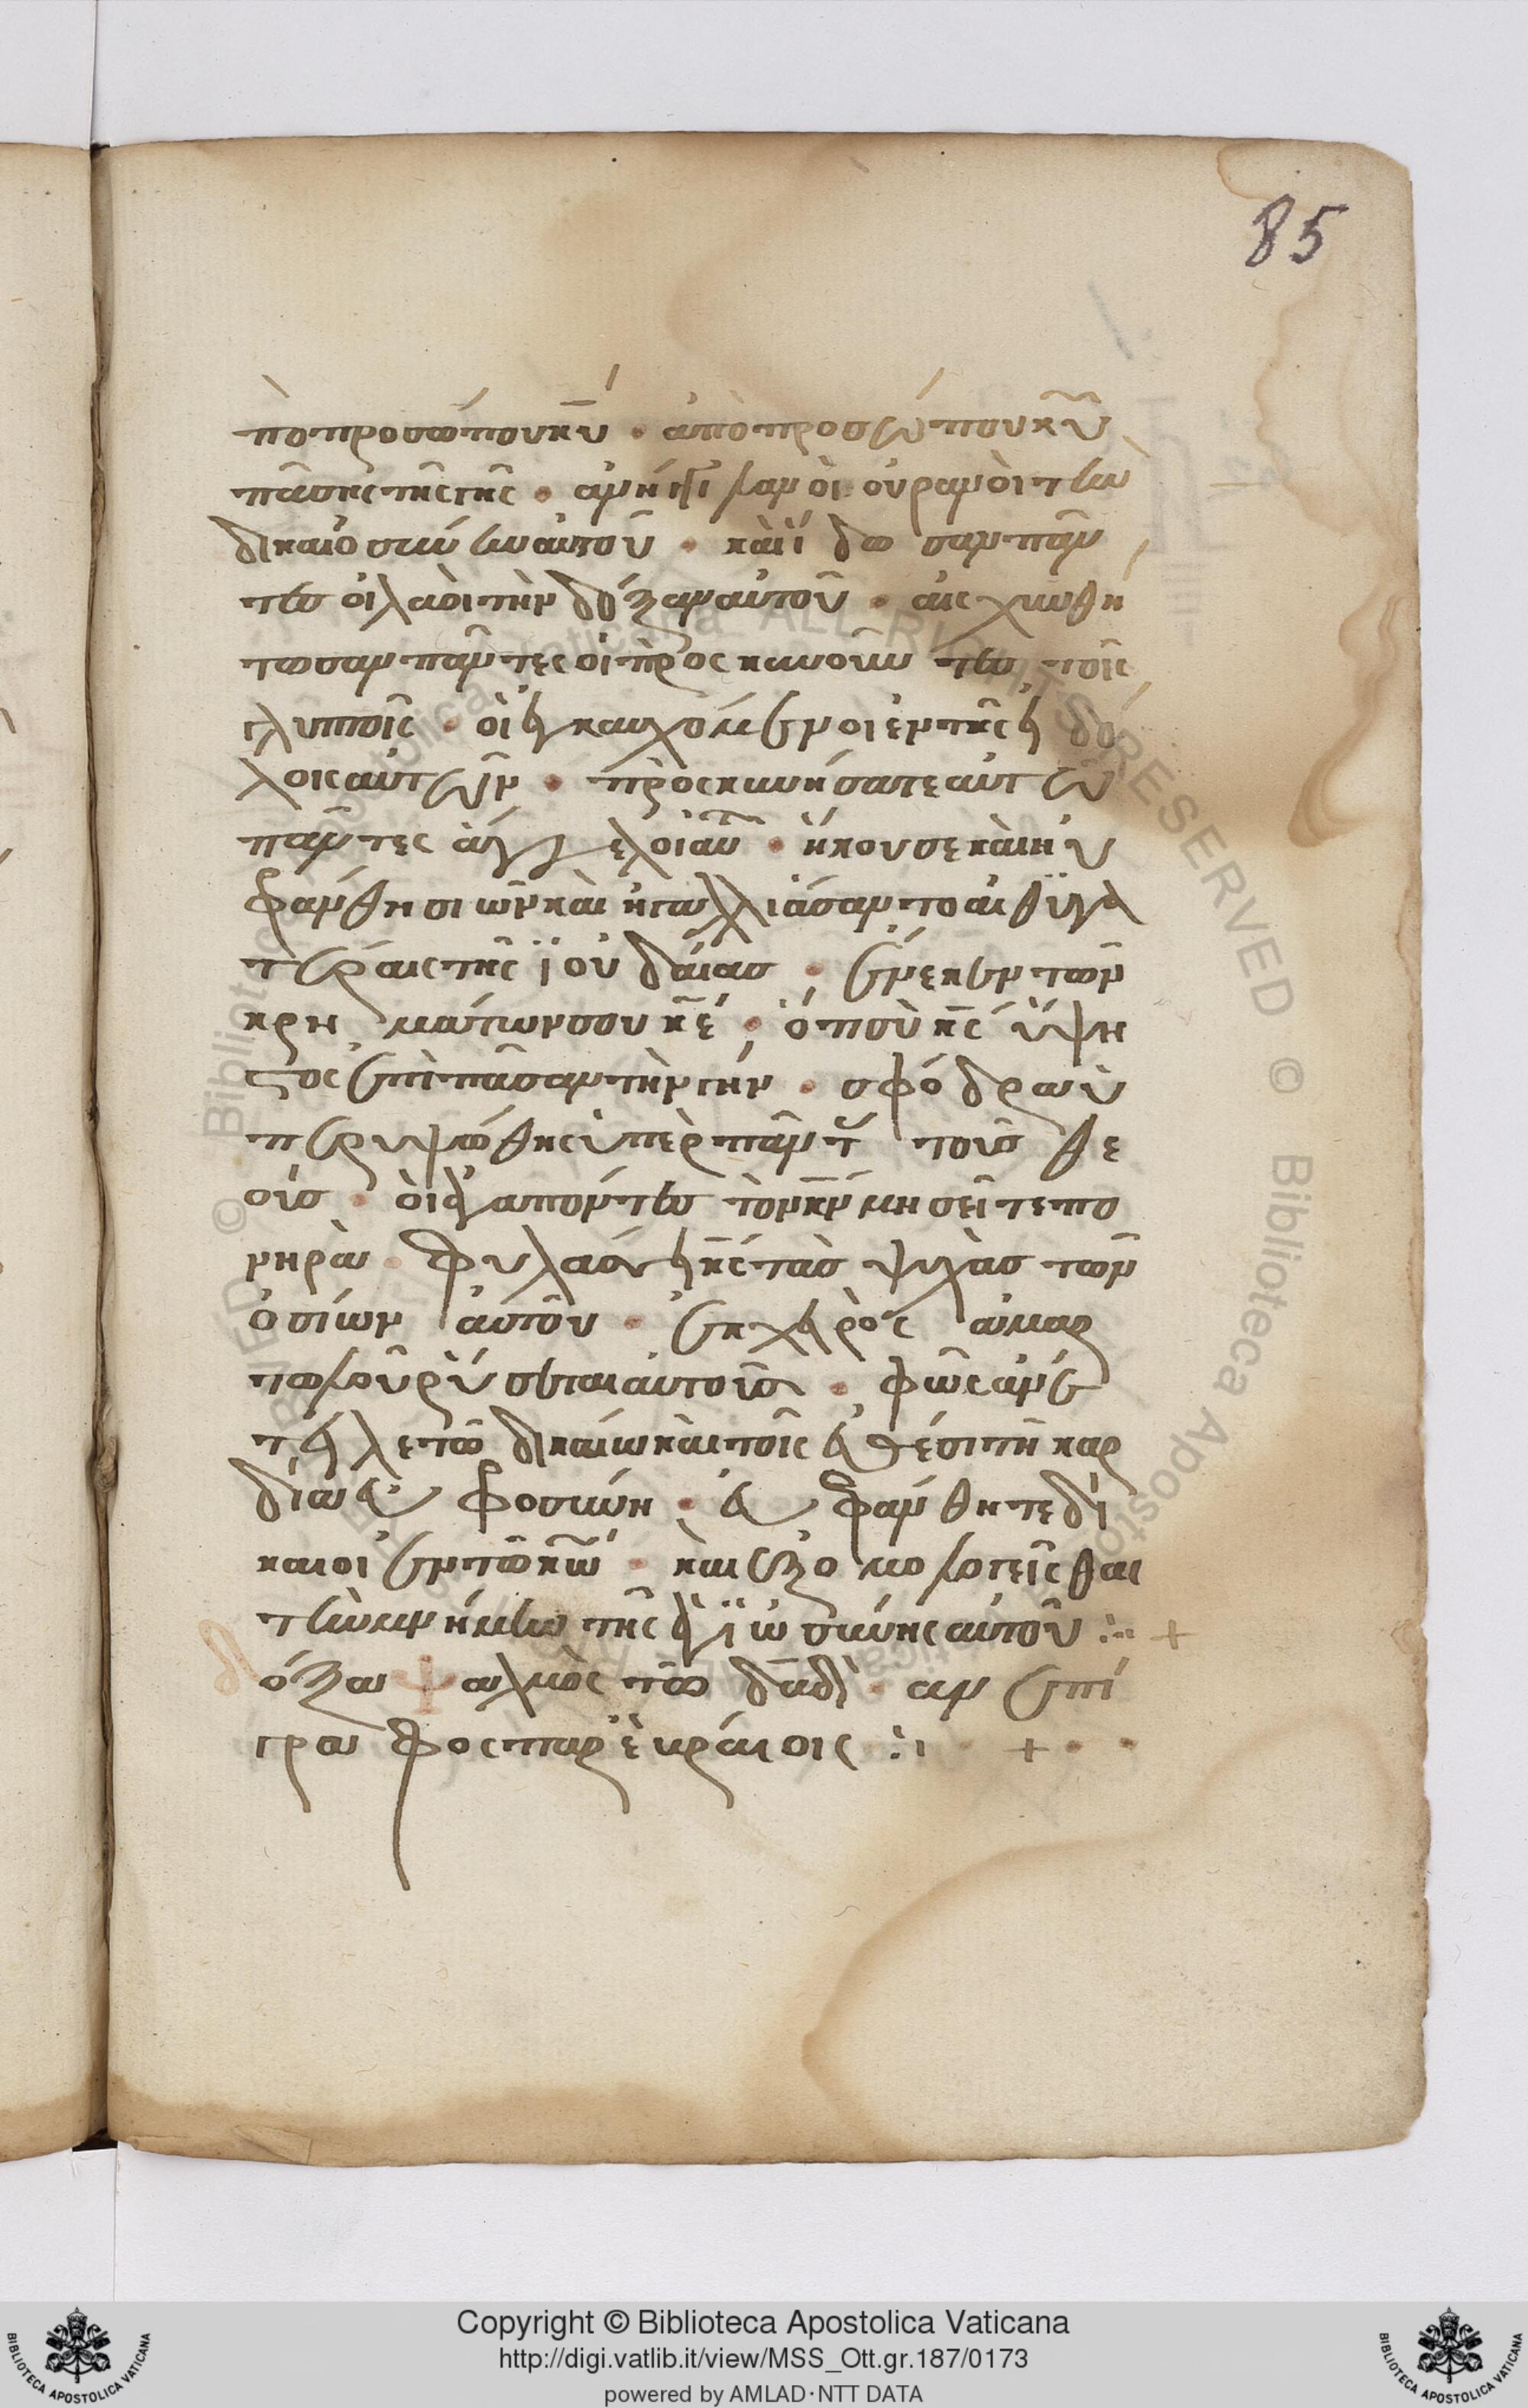 85
πὸ προσώπου κ̅υ̅ · ἀπὸ προσώπου κ̅υ̅
πάσης τῆς γῆς · ἀνήγγειλαν οἱ οὐρανοὶ τὴν
δικαιοσύνην αὐτοῦ · καὶ ἴδωσαν πάν
τες οἱ λαοὶ τὴν δόξαν αὐτοῦ · αἰσχυνθή
τωσαν πάντες οἱ προσκυνοῦντες τοῖς
γλυπτοῖς · οἱ ἐγκαυχόμενοι ἐν τῆς εἰδό
λοις αὐτῶν · προσκυνήσατε αὐτῶ
πάντες ἄγγελοι αὐ · ἤκουσε καὶ ηὐ
φράνθη σιὼν καὶ ἠγαλλιάσαντο αἱ θυγα
τέραις τῆς ϊουδαίας · ἕνεκεν τῶν
κρημάτων σου κ̅ε̅ · ὅτι σὺ κ̅ς̅ ὕψη
στος ἐπὶ πᾶσαν τὴν γῆν · σφόδρα ὑ
περυψώθης ὑπὲρ πάντ τοὺς θε
οὺς · οἱ ἀγαπόντες τὸν κ̅ν̅ μησεῖτε πο
νηρὰ · φυλάσει κ̅ς̅ τὰς ψυχὰς τῶν
ὁσίων αὐτοῦ · ἐκ χειρὸς ἁμαρ
τωλοῦ ρύσεται αὐτοὺς · φῶς ἀνέ
τειλε τῶ δικαίω καὶ τοῖς εὐθέσι τῆ καρ
δία εὐφροσύνη · εὐφράνθητε δί
καιοι ἐν τῶ κ̅ω̅ · καὶ ἐξομολογεῖσθαι
τὴν μνήμην τῆς ἁγϊωσύνης αὐτοῦ ⁘ +
δόξα ψαλμὸς τῶ δ̅α̅δ̅ · ἀνεπί
γραφος παρ' ἑβραίοις ⁘ + · ·
Copyright © Biblioteca Apostolica Vaticana
http://digi.vatlib.it/view/MSS_Ott.gr.187/0173
powered by AMLAD·NTT DATA